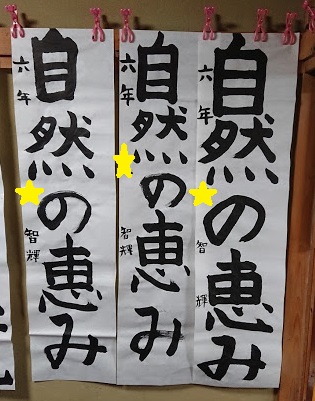 自然の恵み
六年 智輝
自然の恵み
六年 智輝
自然の恵み
六年 智輝